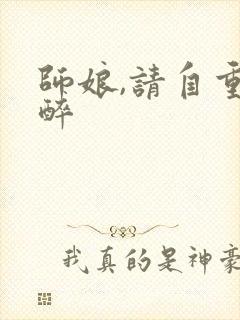 師娘,請自重
醉
我真的是神豪